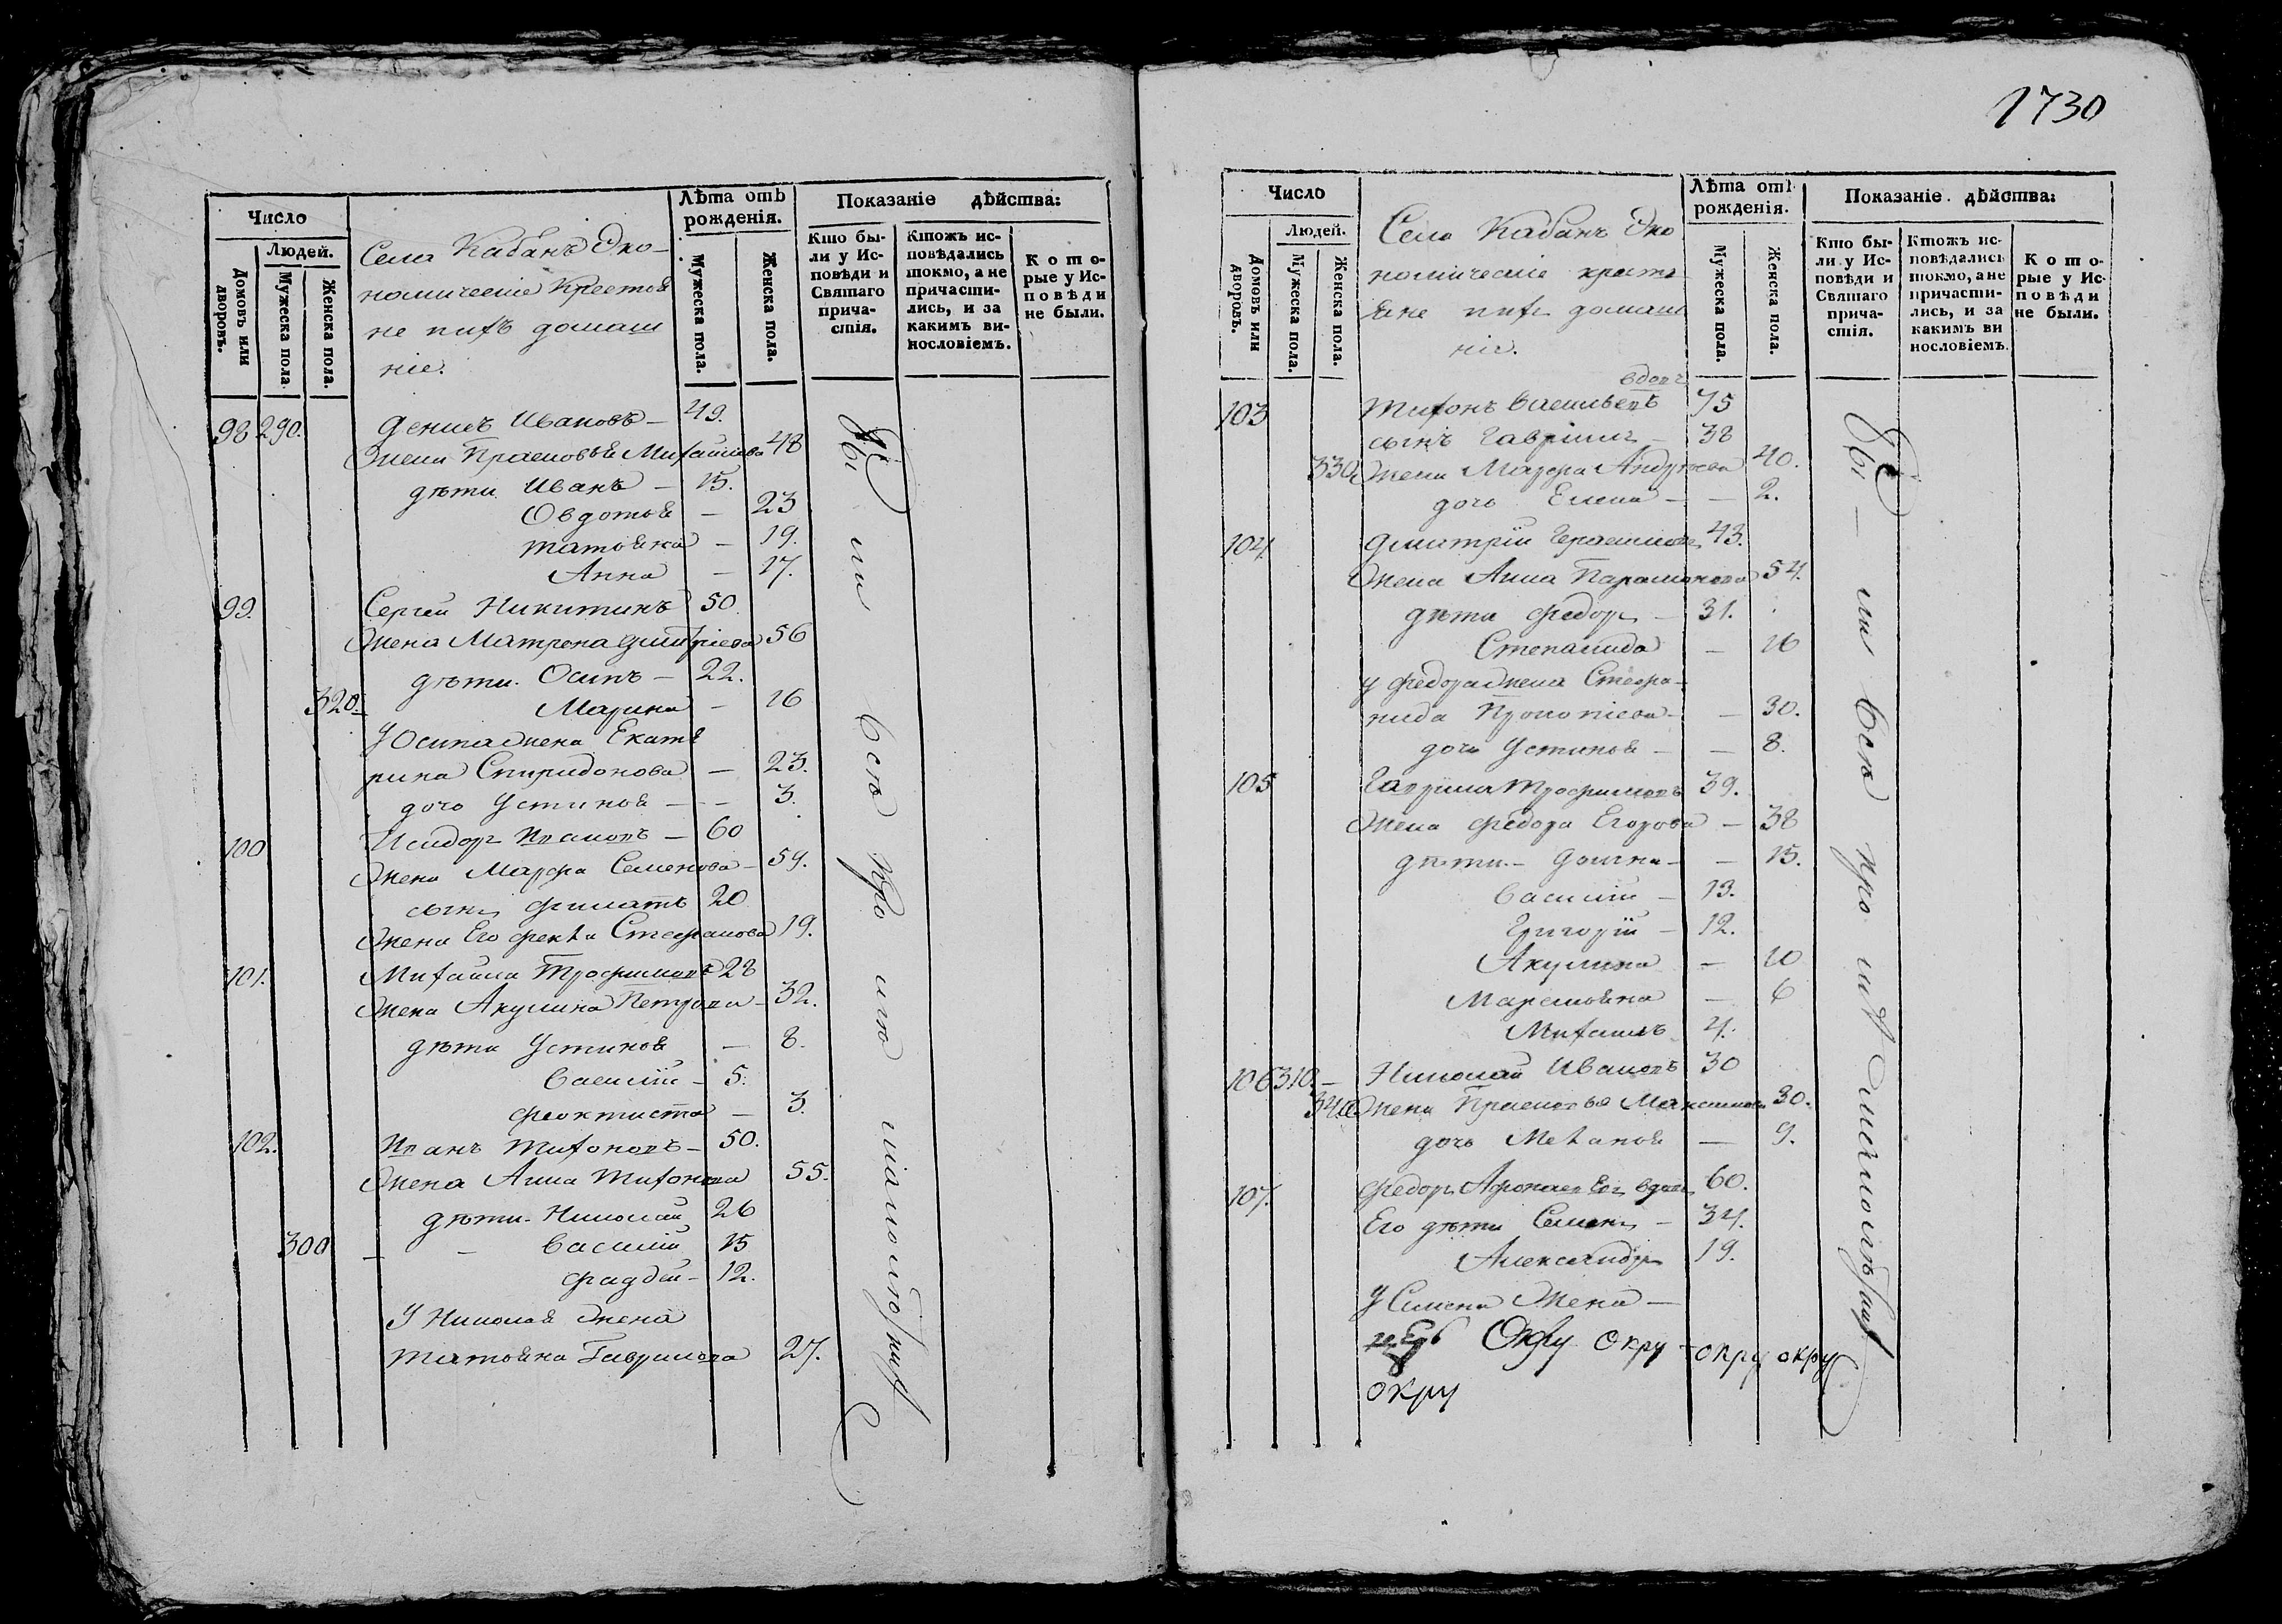 1730
Число
Людей.
Домовъ или дворовъ.
Мужеска пола.
Женска пола.
Села Кабанъ Эко-
номическіе Крестья
не ихъ домаш
ніе.
Лѣта отъ
рожденія.
Мужеска пола.
Женска пола.
Показаніе дѣйства:
Кто бы-
ли у Ис-
повѣди и
Святаго
прича-
стія.
Ктожъ ис-
повѣдались
токмо, а не
причасти-
лись, и за
какимъ ви-
нословіемъ.
Кото-
рые у Ис-
повѣди
не были.
98 290. Денисъ Ивановъ — 49.
Жена Прасковья Михайлова 48
дѣти Иванъ — 15.
Овдотья — 23
татьяна — 19.
Анна — 17.
99. Сергей Никитинъ 50.
Жена Матрена дмитріева 56
дѣти. Осипъ — 22.
320. Марина — 16
У Осипа жена Екате
рина Спиридонова — 23.
дочь Устинья — — 3.
100 Исидоръ Ивановъ — 60
Жена Марфа Семенова — 59.
сынъ филатъ 20
Жена Его фекла Стефанова 19.
101. Михайла Трофимовъ 28
Жена Акулина Петрова — 32.
дѣти Устинья — 8.
Василій — 5.
феоктиста — 3.
102. Иванъ Тихоновъ — 50.
Жена Анна Тихонова 55.
дѣти. Николай 26
300 — — Василій 15
фадей — 12.
У Николая жена
татьяна Гаврилова 27.
Бы ли всѣ
Число
Людей.
Домовъ или дворовъ.
Мужеска пола.
Женска пола.
Села Кабанъ Эко
номическіе кресть
яне ихъ домаш
ніе.
Лѣта отъ
рожденія.
Мужеска пола.
Женска пола.
Показаніе дѣйства:
Кто бы-
ли у Ис-
повѣди и
Святаго
прича-
стія.
Ктожъ ис-
повѣдались
токмо, а не
причасти-
лись, и за
какимъ ви
нословіемъ.
Кото-
рые у Ис-
повѣди
не были.
вдовъ
103 Тихонъ Васильевъ 75
сынъ Гаврилъ — 38
330. Жена Марфа Андреева 40.
дочь Елена — — 2.
104. Дмитрій Герасимовъ 43.
Жена Анна Парамонова 54.
дѣти федоръ — 31.
Степанида — 16
у федора жена Стефа-
нида Прокопіева — — 30.
дочь Устинья — — 8.
105 Гаврила Трофимовъ 39.
Жена федора Егорова — 38
дѣти. — Домна — — 15.
Василій — 13.
Григорій — 12.
Акулина — 10
Маремьяна — 6
Михаилъ 4.
106 310. — Николай Ивановъ 30
340. Жена Прасковья Максимова 30.
дочь Меланья — 9.
107. федоръ вдовъ 60.
Его дѣти Семенъ — 34.
Александръ 19.
У Семена Жена —
Окру окру — окру окру
окру
Бы — ли всѣ